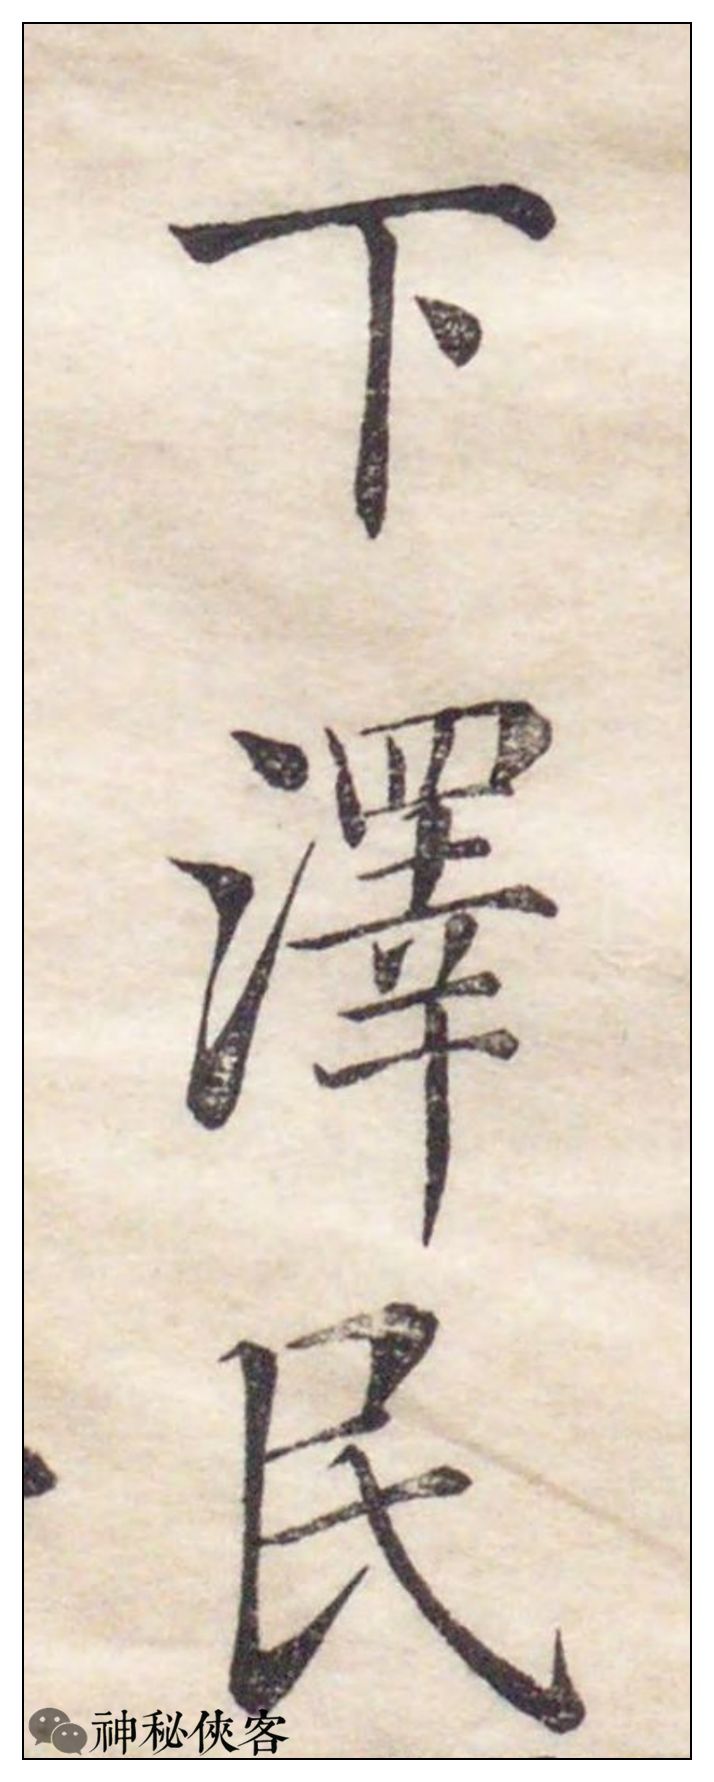 下澤民
神秘俠客